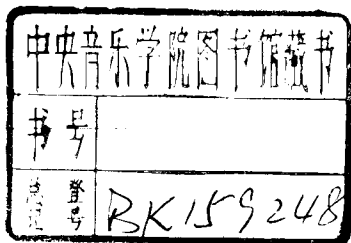 中央音乐学院图书馆藏书
书号
总登记号 BK159248